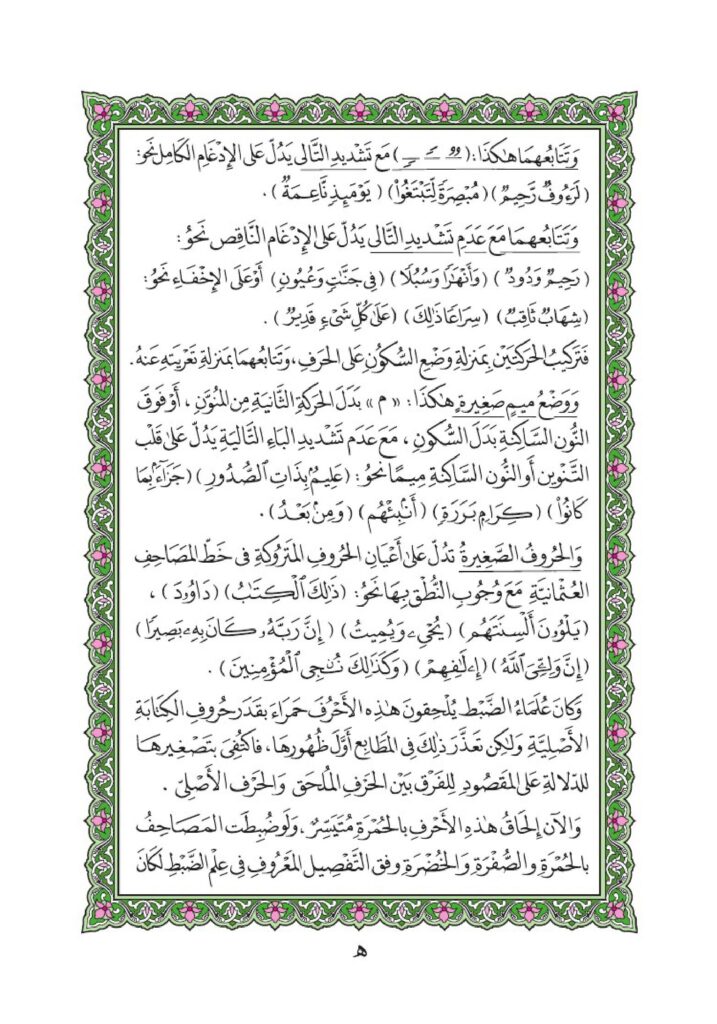 وَتَتَابُعُهُمَا هَٰكَذَا: (ـٌـ ـٍـ ـًـ) مَعَ تَشْدِيدِ التَّالِى يَدُلّ عَلَى الإِدْغَامِ الكَامِلِ نَحْوُ:
(لَرَءُوفٌ رَّحِيمٌ) (مُبْصِرَةً لِّتَبْتَغُوا۟) (يَوْمَئِذٍ نَّاعِمَةٌ).
وَتَتَابُعُهُمَا مَعَ عَدَمِ تَشْدِيدِ التَّالِى يَدُلّ عَلَى الإِدْغَامِ النَّاقِصِ نَحْوُ:
(رَحِيمٌ وَدُودٌ) (وَأَنْهَٰرًا وَسُبُلًا) (فِى جَنَّٰتٍ وَعُيُونٍ) أَوْ عَلَى الإِخْفَاءِ نَحْوُ:
(شِهَابٌ ثَاقِبٌ) (سِرَاعًا ذَٰلِكَ) (عَلَىٰ كُلِّ شَىْءٍ قَدِيرٌ).
فَتَرْكِيبُ الحَرَكَتَيْنِ بِمَنزِلَةِ وَضْعِ السُّكُونِ عَلَى الحَرْفِ، وَتَتَابُعُهُمَا بِمَنزِلَةِ تَعْرِيَتِهِ عَنهُ.
وَوَضْعُ مِيمٍ صَغِيرَةٍ هَٰكَذَا: «م» بَدَلَ الحَرَكَةِ الثَّانِيَةِ مِنَ المُنَوَّنِ، أَوْ فَوْقَ
النُّونِ السَّاكِنَةِ بَدَلَ السُّكُونِ، مَعَ عَدَمِ تَشْدِيدِ البَاءِ التَّالِيَةِ يَدُلّ عَلَى قَلْبِ
التَّنْوِينِ أَوِ النُّونِ السَّاكِنَةِ مِيمًا نَحْوُ: (عَلِيمُۢ بِذَاتِ ٱلصُّدُورِ) (جَزَآءَۢ بِمَا
كَانُوا۟) (كِرَامِۭ بَرَرَةٍ) (أَنۢبِئْهُم) (وَمِنۢ بَعْدُ).
وَالحُرُوفُ الصَّغِيرَةُ تَدُلّ عَلَى أَعْيَانِ الحُرُوفِ المَتْرُوكَةِ فِى خَطِّ المَصَاحِفِ
العُثْمَانِيَّةِ مَعَ وُجُوبِ النُّطْقِ بِهَا نَحْوُ: (ذَٰلِكَ ٱلْكِتَٰبُ) (دَاوُۥدَ)،
(يَلْوُۥنَ أَلْسِنَتَهُم) (يُحْىِۦ وَيُمِيتُ) (إِنَّ رَبَّهُۥ كَانَ بِهِۦ بَصِيرًا)
(إِنَّ وَلِـِّۧىَ ٱللَّهُ) (إِۦلَٰفِهِمْ) (وَكَذَٰلِكَ نُـۨجِى ٱلْمُؤْمِنِينَ).
وَكَانَ عُلَمَاءُ الضَّبْطِ يُلْحِقُونَ هَٰذِهِ الأَحْرُفَ حَمْرَاءَ بِقَدَرِ حُرُوفِ الكِتَابَةِ
الأَصْلِيَّةِ وَلَٰكِن تَعَذَّرَ ذَٰلِكَ فِى المَطَابِعِ أَوَّلَ ظُهُورِهَا، فَاكْتُفِىَ بِتَصْغِيرِهَا
لِلدَّلَالَةِ عَلَى المَقْصُودِ لِلفَرْقِ بَيْنَ الحَرْفِ المُلْحَقِ وَالحَرْفِ الأَصْلِىِّ.
وَالآنَ إِلْحَاقُ هَٰذِهِ الأَحْرُفِ بِالحُمْرَةِ مُتَيَسِّرٌ، وَلَوْ ضُبِطَتِ المَصَاحِفُ
بِالحُمْرَةِ وَالصُّفْرَةِ وَالخُضْرَةِ وَفْقَ التَّفْصِيلِ المَعْرُوفِ فِى عِلْمِ الضَّبْطِ لَكَانَ
ه